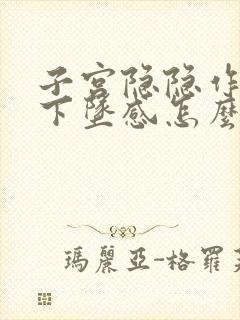 子宫隐隐作
下墜感怎麼
瑪麗亞-格羅